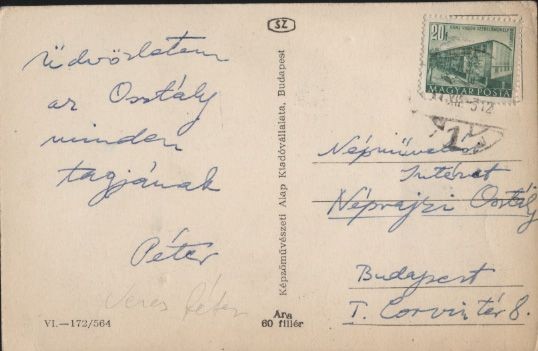 SZ
Üdvözletem
az Osztály
minden
tagjának
Péter
Veres Péter
VI.—172/564
Képzőművészeti Alap Kiadóvállalata, Budapest
Ara
60 fillér
20f
MAGYAR POSTA
Népművelési
Intézet
Néprajzi Osztály
Budapest
I. Corvin tér 8.